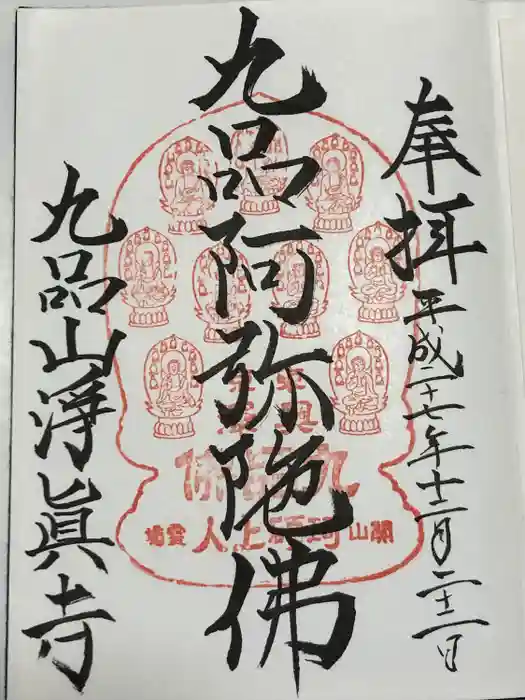 奉拝
平成二十七年十二月二十二日
九品阿弥陀佛
九品山浄眞寺
開山珂碩上人霊場